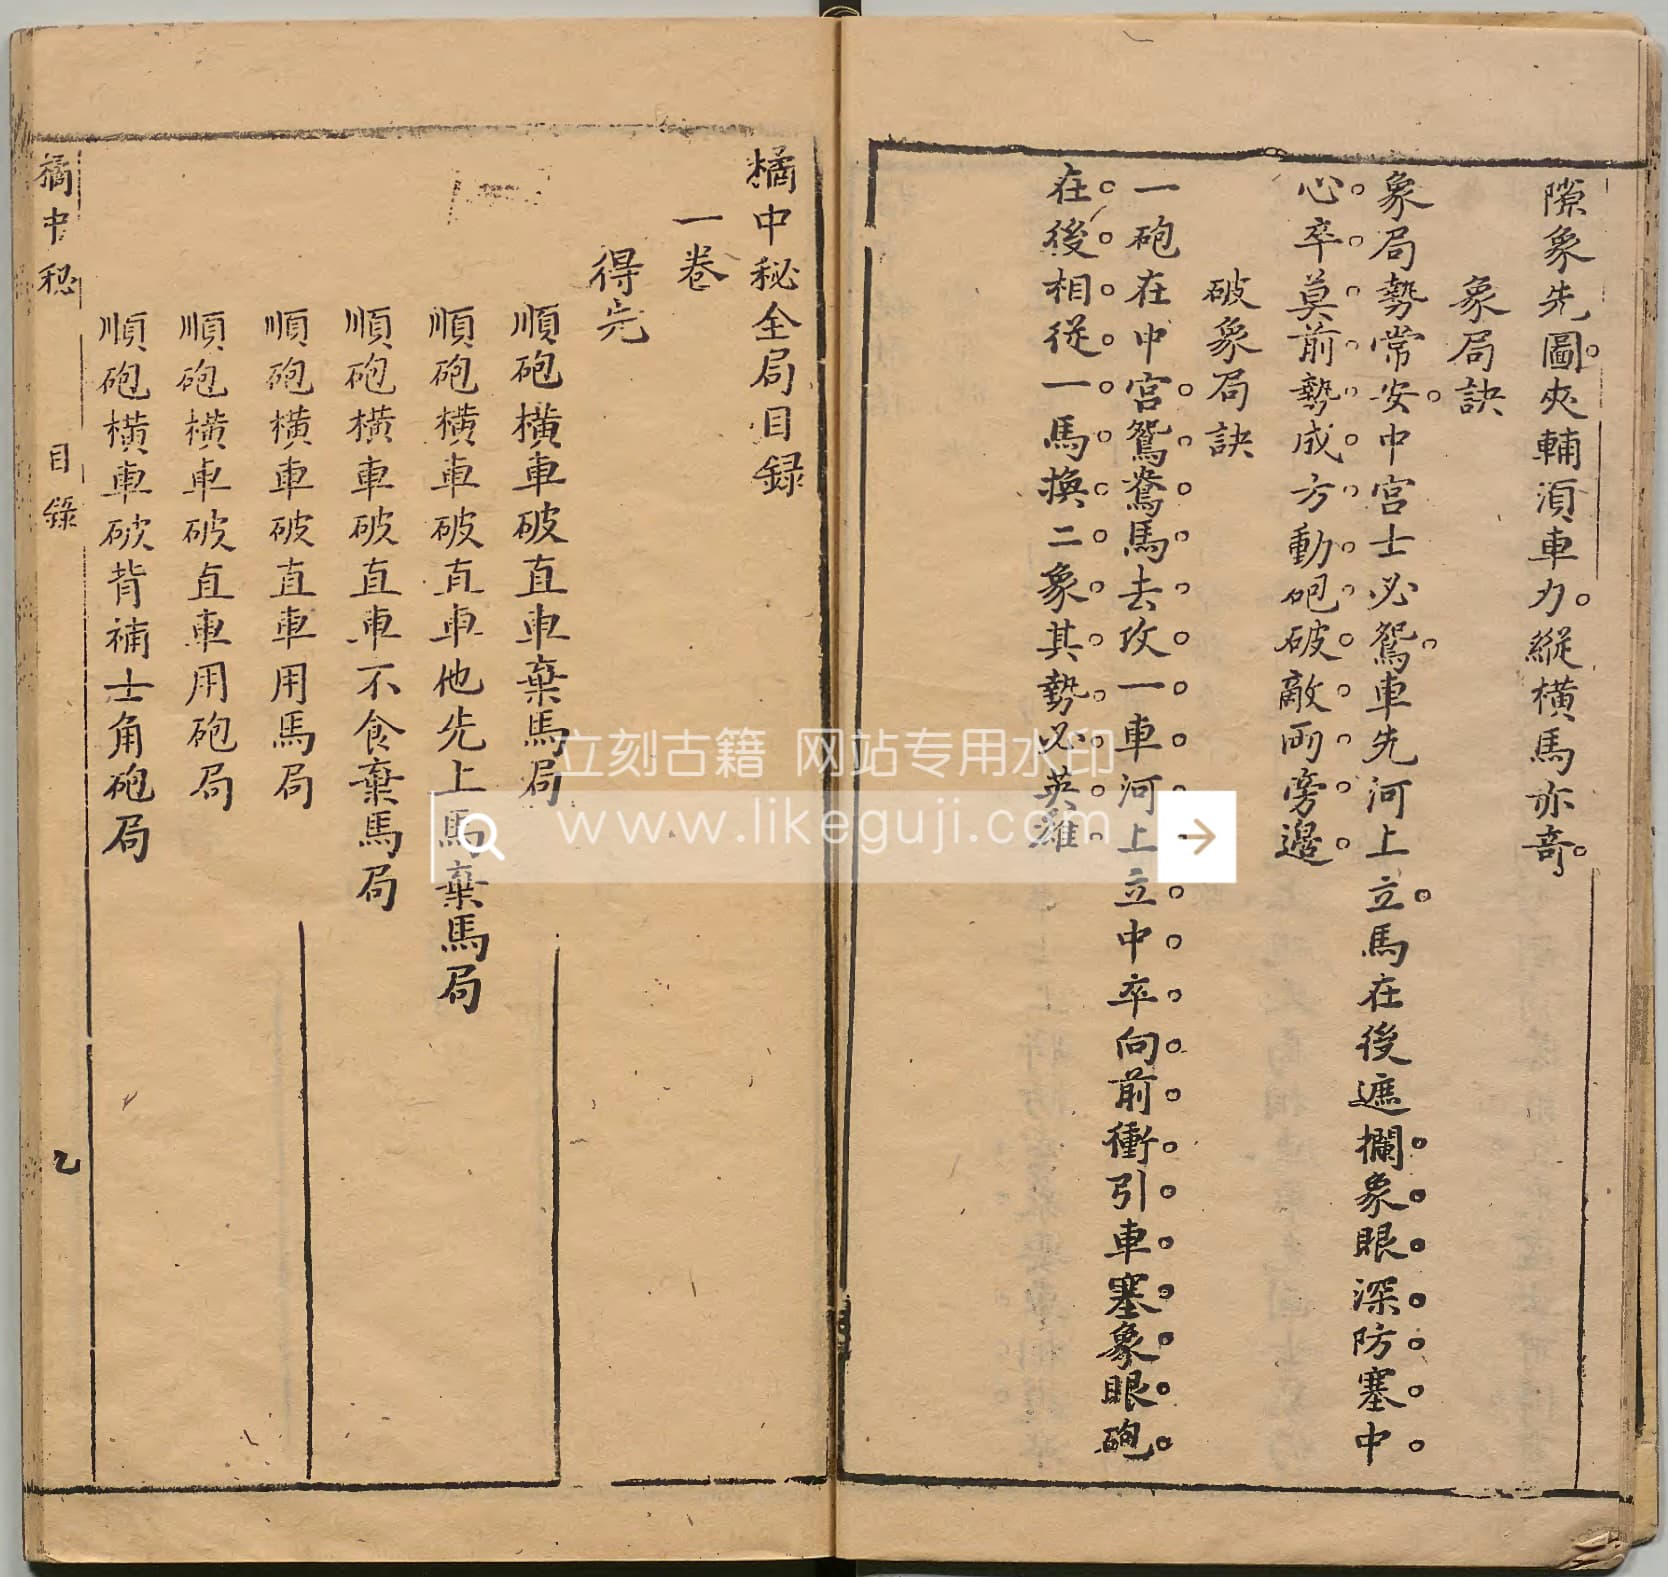 隙象先圖夾輔湏車力縱横馬亦竒
象局訣
象局勢常安中宮士必鴛車先河上立馬在後遮攔象眼深防塞中
心卒莫前勢成方動砲破敵兩旁邊
破象局訣
一砲在中宮鴛鴦馬去攻一車河上立中卒向前衝引車塞象眼砲
在後相從一馬換二象其勢必英雄
橘中秘全局目録
一卷
得先
順砲橫車破直車棄馬局
順砲橫車破直車他先上馬棄馬局
順砲橫車破直車不食棄馬局
順砲橫車破直車用馬局
順砲橫車破直車用砲局
順砲橫車破背補士角砲局
橘中秘
目錄
乙
立刻古籍 网站专用水印
www.likeguji.com